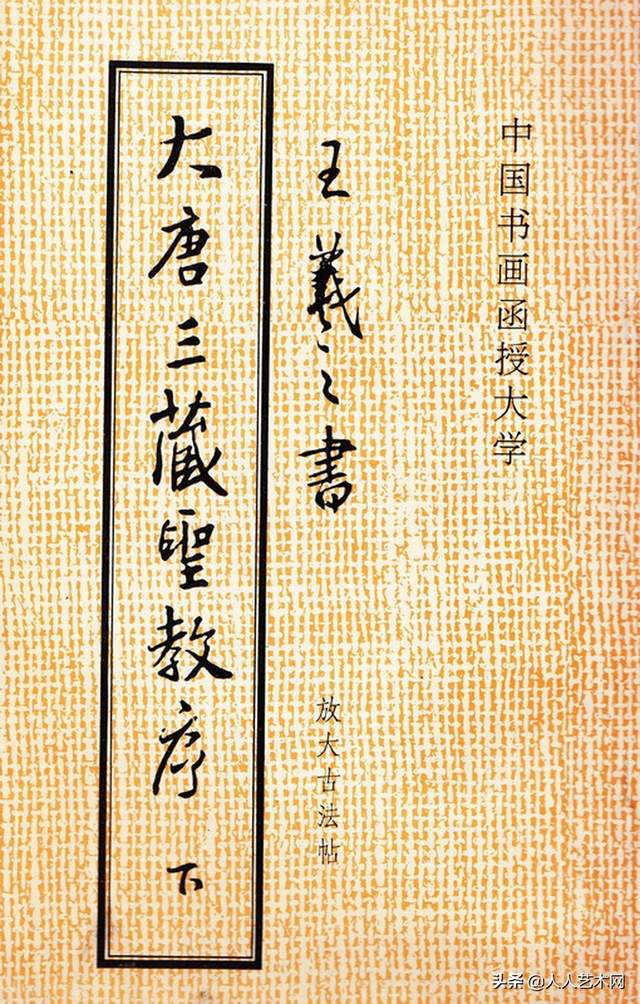 中国书画函授大学
王羲之書
放大古法帖
大唐三藏聖教序 下
头条 @人人艺术网